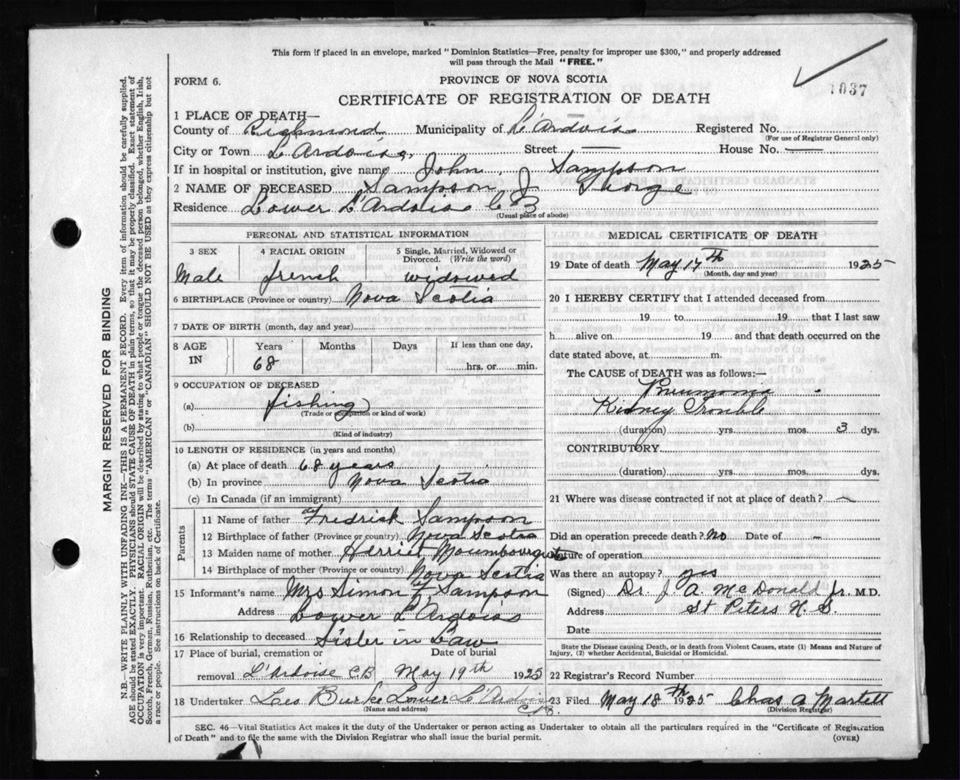 This form if placed in an envelope, marked "Dominion Statistics—Free, penalty for improper use $300," and properly addressed
will pass through the Mail "FREE."
FORM 6.
PROVINCE OF NOVA SCOTIA
1037
CERTIFICATE OF REGISTRATION OF DEATH
1 PLACE OF DEATH—
County of Richmond Municipality of L'Ardois Registered No.
(For use of Registrar General only)
City or Town L'Ardoise, Street — House No. —
If in hospital or institution, give name John Sampson
2 NAME OF DECEASED Sampson J
Residence Lower L'Ardois C B
(Usual place of abode)
PERSONAL AND STATISTICAL INFORMATION
3 SEX 4 RACIAL ORIGIN 5 Single, Married, Widowed or
Divorced. (Write the word)
Male french widowed
6 BIRTHPLACE (Province or country) Nova Scotia
7 DATE OF BIRTH (month, day and year)
8 AGE Years Months Days If less than one day,
IN 68 hrs. or min.
9 OCCUPATION OF DECEASED
(a) fishing
(Trade or occupation or kind of work)
(b)
(Kind of industry)
10 LENGTH OF RESIDENCE (in years and months)
(a) At place of death 68 years
(b) In province Nova Scotia
(c) In Canada (if an immigrant)
Parents
11 Name of father Fredrick Sampson
12 Birthplace of father (Province or country) Nova Scotia
13 Maiden name of mother
14 Birthplace of mother (Province or country) Nova Scotia
15 Informant's name Mrs Simon Sampson
Address Lower L'Ardois
16 Relationship to deceased Sister in Law
17 Place of burial, cremation or Date of burial
removal L'Ardoise C.B May 19th 1925
18 Undertaker Leo Burke Lower L'Ardois
(Name and address) C.B.
MEDICAL CERTIFICATE OF DEATH
19 Date of death May 17th 1925
(Month, day and year)
20 I HEREBY CERTIFY that I attended deceased from
19 to 19 that I last saw
h alive on 19 and that death occurred on the
date stated above, at m.
The CAUSE of DEATH was as follows:—
Pneumonia
Kidney Trouble
(duration) yrs. mos. 3 dys.
CONTRIBUTORY
(duration) yrs. mos. dys.
21 Where was disease contracted if not at place of death? —
Did an operation precede death? No Date of —
Nature of operation
Was there an autopsy? yes
(Signed) Dr. J A. McDonald Jr. M.D.
Address St Peters N. S.
Date
State the Disease causing Death, or in death from Violent Causes, state (1) Means and Nature of
Injury, (2) whether Accidental, Suicidal or Homicidal.
22 Registrar's Record Number
23 Filed May 18th 1925 Chas A Martell
(Division Registrar)
SEC. 46—Vital Statistics Act makes it the duty of the Undertaker or person acting as Undertaker to obtain all the particulars required in the "Certificate of Registration
of Death" and to file the same with the Division Registrar who shall issue the burial permit. (OVER)
MARGIN RESERVED FOR BINDING
N.B.—WRITE PLAINLY WITH UNFADING INK—THIS IS A PERMANENT RECORD. Every item of information should be carefully supplied.
AGE should be stated EXACTLY. PHYSICIANS should STATE CAUSE OF DEATH in plain terms, so that it may be properly classified. Exact statement of
OCCUPATION is very important. RACIAL ORIGIN will be described by stating to what people or tongue the deceased person belonged, whether English, Irish,
Scotch, French, German, Russian, Ruthenian, etc. The terms "AMERICAN" or "CANADIAN" SHOULD NOT BE USED as they express citizenship but not
a race or people. See instructions on back of Certificate.